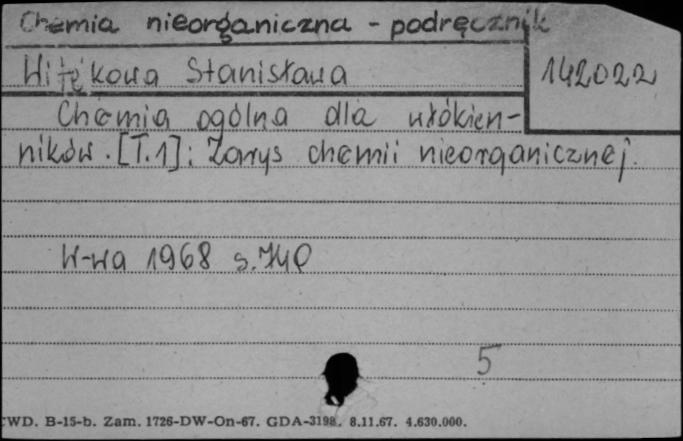 Chemia nieorganiczna - podręcznik
Witękowa Stanisława
142022
Chemia ogólna dla włókien-
ników. [T.1]: Zarys chemii nieorganicznej.
W-wa 1968 s.740
5
CWD. B-15-b. Zam. 1726-DW-On-67. GDA-3198. 8.11.67. 4.630.000.